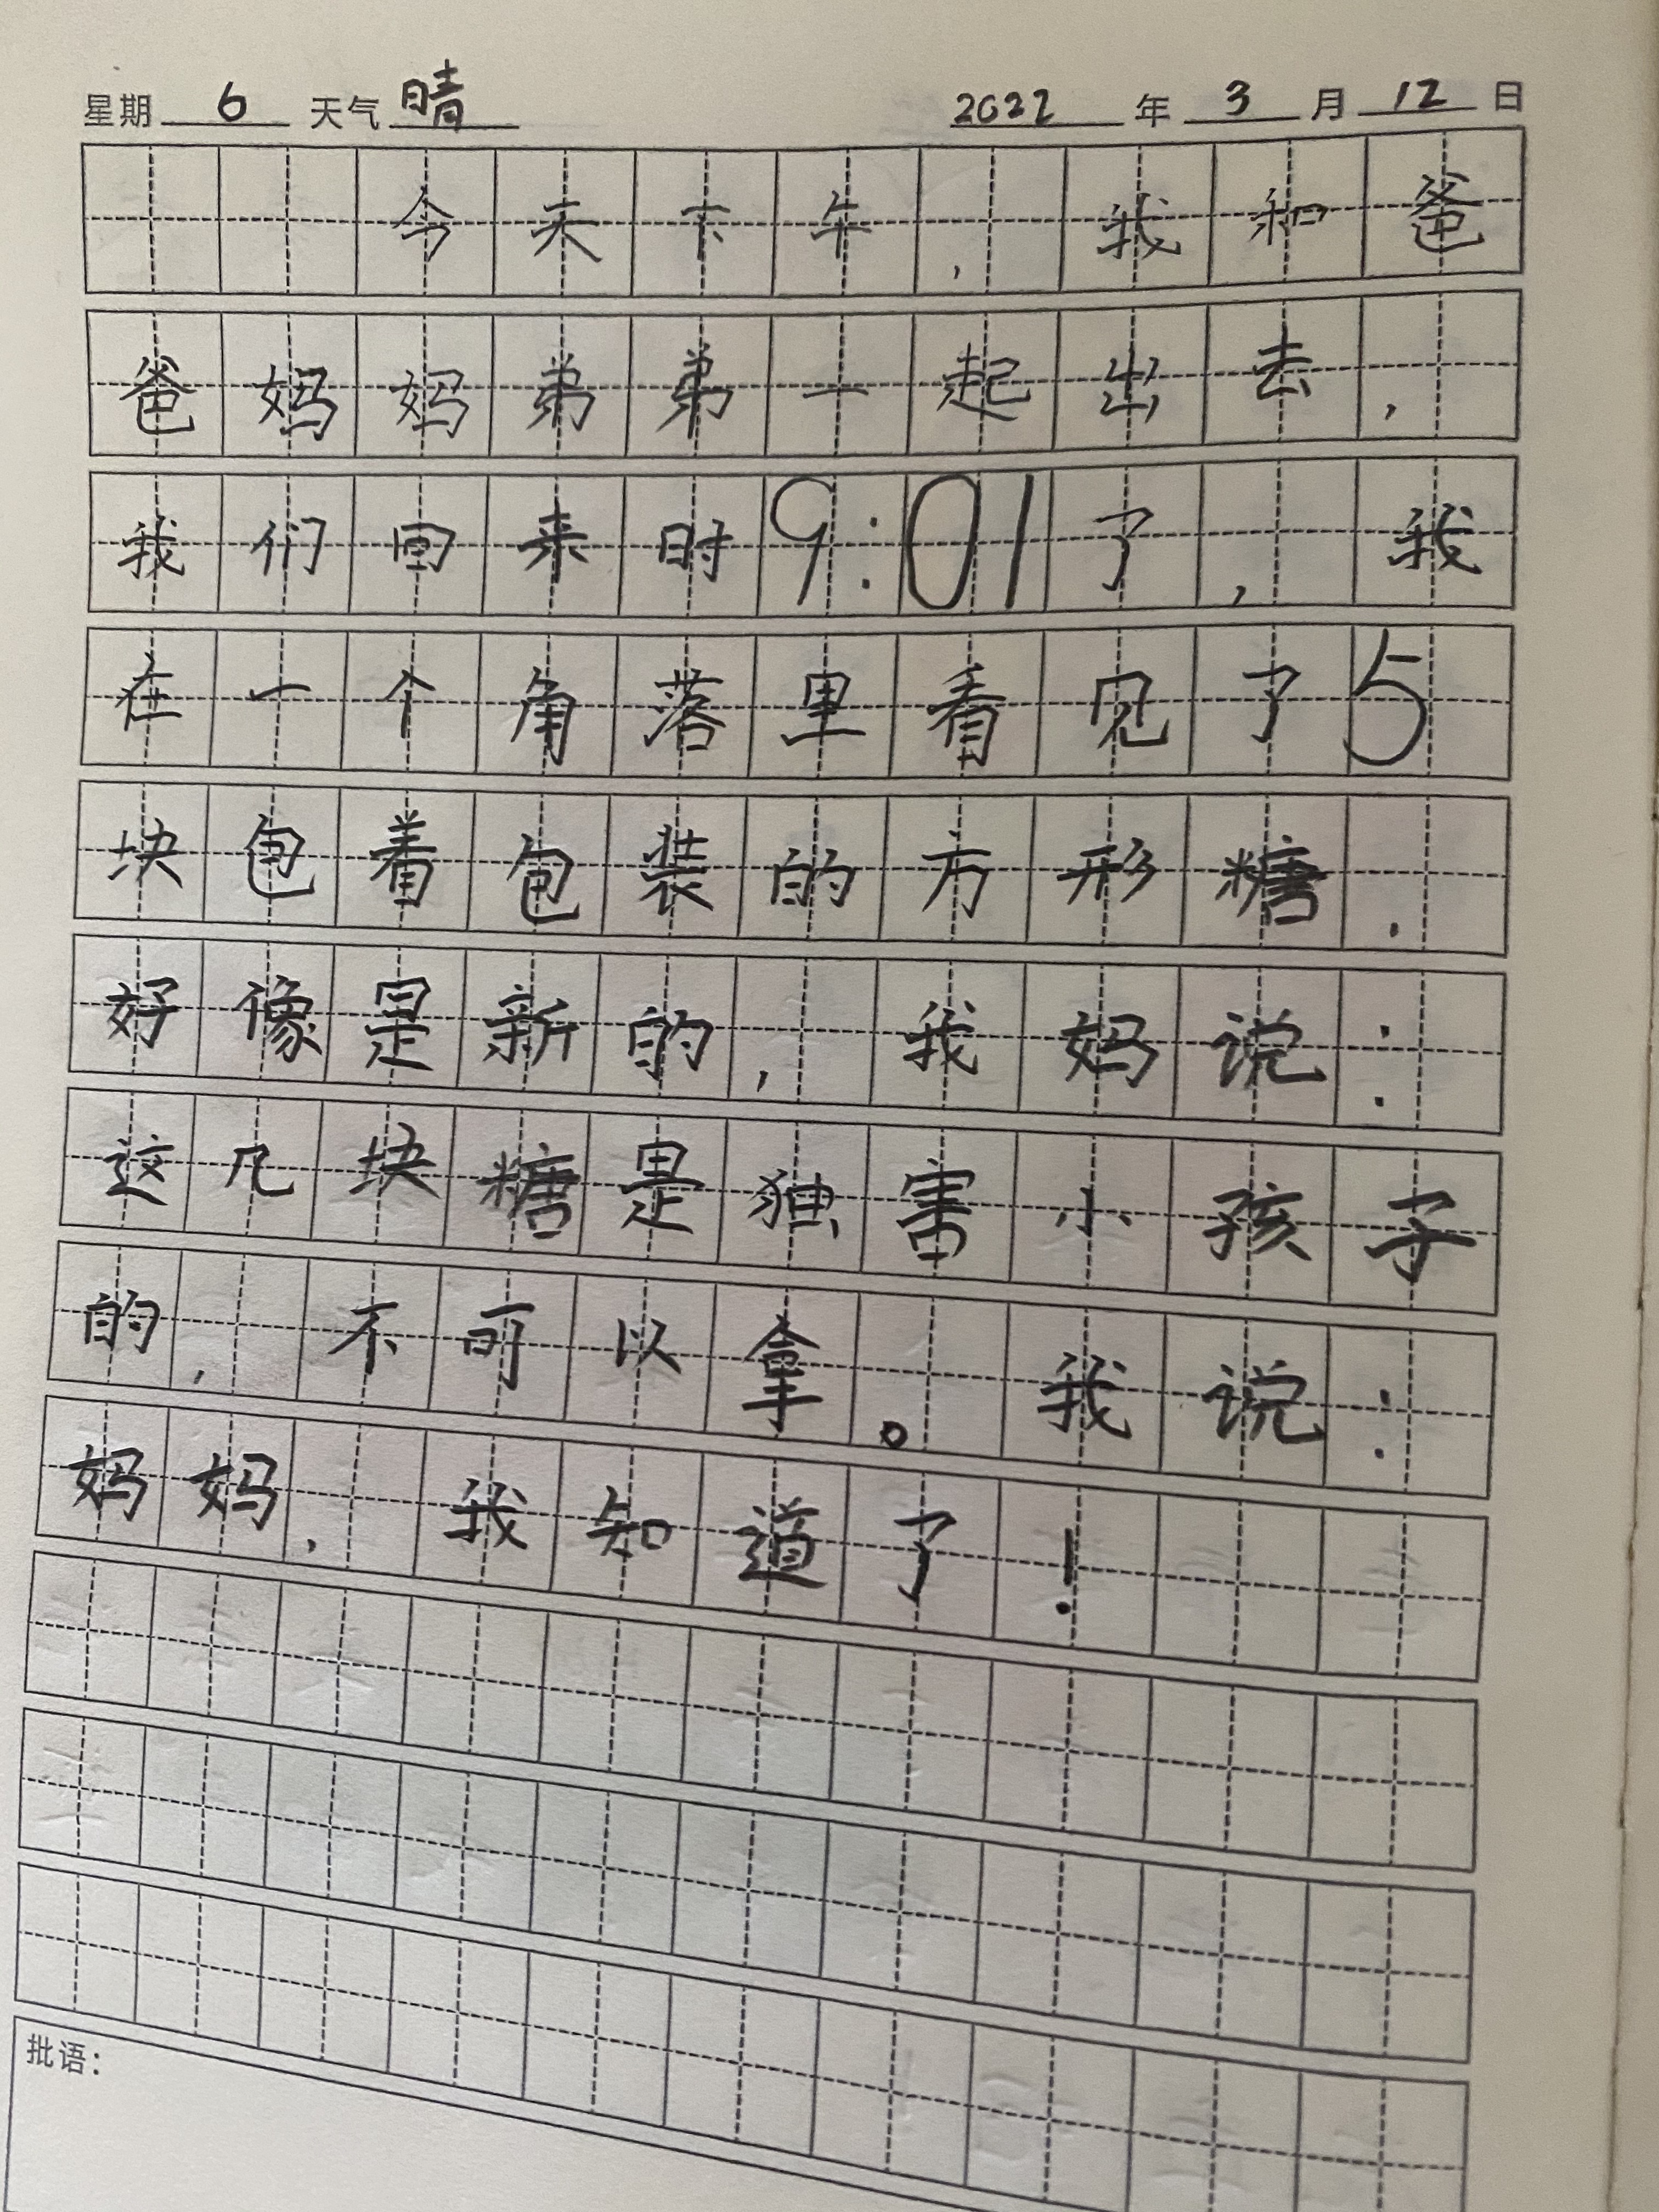 星期 6 天气 晴 2022 年 3 月 12 日
今天下午,我和爸
爸妈妈弟弟一起出去,
我们回来时9:01了,我
在一个角落里看见了5
块包着包装的方形糖.
好像是新的,我妈说:
这几块糖是独害小孩子
的,不可以拿。我说:
妈妈,我知道了!
批语: